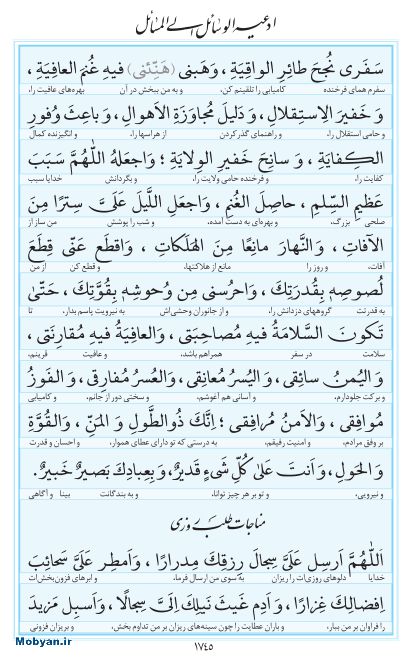 ادعیه الوسائل الی المسائل
سَفَری نُجحَ طائِرِ الواقِیَةِ، وَهَبنی (هَنِّئنی) فیهِ غُنمَ العافِیَةِ،
سفرم همای فرخنده کامیابی را تلقینم کن، و به من ببخش در آن بهره‌های عافیت را،
وَ خَفیرَ الاِستِقلالِ، وَ دَلیلَ مُجاوَزَةِ الاَهوالِ، وَ باعِثَ وُفورِ
و حامی استقلال را، و راهنمای گذر کردن از هراسها را، و انگیزنده کمال
الکِفایَةِ، وَ سانِحَ خَفیرِ الوِلایَةِ؛ وَاجعَلهُ اللّٰهُمَّ سَبَبَ
کفایت را، و فرخنده حامی ولایت را، و بگردانش خدایا سبب
عَظیمِ السِّلمِ، حاصِلَ الغُنمِ، وَاجعَلِ اللَّیلَ عَلَیَّ سِترًا مِنَ
صلحی بزرگ، و بهره‌ای به دست آمده، و شب را پوشش من ساز از
الآفاتِ، وَالنَّهارَ مانِعًا مِنَ الهَلَکاتِ، وَاقطَع عَنّی قِطَعَ
آفات، و روز را مانع از هلاکتها، و قطع کن از من
لُصوصِهِ بِقُدرَتِكَ، وَاحرُسنی مِن وُحوشِهِ بِقُوَّتِكَ، حَتّیٰ
به قدرتت گروههای دزدانش را، و از جانوران وحشی‌اش به نیرویت پاسم بدار، تا
تَکونَ السَّلامَةُ فیهِ مُصاحِبَتی، وَالعافِیَةُ فیهِ مُقارِنَتی،
سلامت در سفر همراهم باشد، و عافیت قرینم،
وَ الیُمنُ سائِقی، وَ الیُسرُ مُعانِقی، وَ العُسرُ مُفارِقی، وَ الفَوزُ
و برکت جلودارم، و آسانی هم آغوشم، و سختی دور از جانم، و کامیابی
مُوافِقی، وَ الاَمنُ مُرافِقی؛ اِنَّكَ ذُوالطَّولِ وَ المَنِّ، وَ القُوَّةِ
بر وفق مرادم، و امنیت رفیقم، به درستی که تو دارای عطای هموار، و احسان و قدرت
وَ الحَولِ، وَ اَنتَ عَلیٰ کُلِّ شَیءٍ قَدیرٌ، وَ بِعِبادِكَ بَصیرٌ خَبیرٌ.
و نیرویی، و تو بر هر چیز توانا، و به بندگانت بینا و آگاهی
مناجات طلب روزی
اَللّٰهُمَّ اَرسِل عَلَیَّ سِجالَ رِزقِكَ مِدرارًا، وَ اَمطِر عَلَیَّ سَحائِبَ
خدایا دلوهای روزی‌ات را ریزان به سوی من ارسال فرما، و ابرهای فزون‌بخشی‌ات
اِفضالِكَ غِزارًا، وَ اَدِم غَیثَ نَیلِكَ اِلَیَّ سِجالًا، وَ اَسبِل مَزیدَ
را فراوان بر من ببار، و باران عطایت را چون سینه‌های ریزان بر من تداوم بخش، و بریزان فزونی
Mobyan.ir
۱۷۴۵